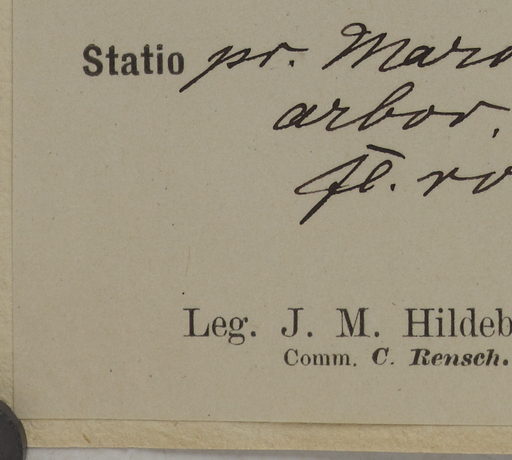 Statio pr. Maro
arbor.
fl. ro
Leg. J. M. Hildeb
Comm. C. Rensch.